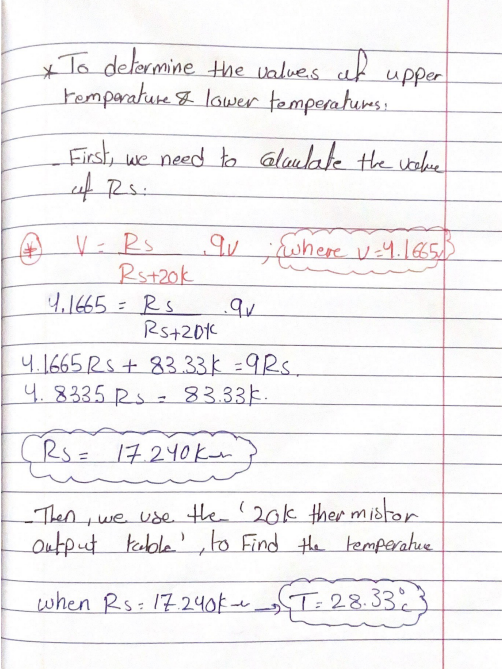 * To determine the values of upper
temperature & lower temperatures.
- First, we need to calculate the value
of Rs.
* V = Rs / Rs+20k .9v ; where V=4.1665
4.1665 = Rs / Rs+20k .9v
4.1665 Rs + 83.33k = 9Rs.
4.8335 Rs = 83.33k.
Rs = 17.240k
- Then, we use the '20k thermistor
output table', to Find the temperature
when Rs = 17.240k → T = 28.33°C